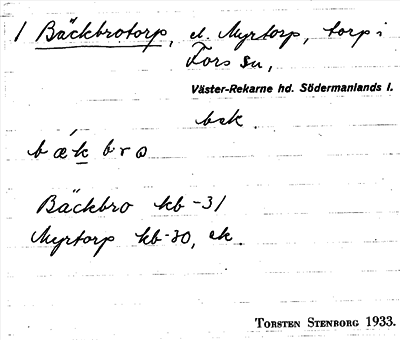 1 Bäckbrotorp, el. Myrtorp, torp i
Fors sn,
Väster-Rekarne hd. Södermanlands l.
bsk.
b ǽ k b r o
Bäckbro kb -31
Myrtorp kb-30, ek.
TORSTEN STENBORG 1933.